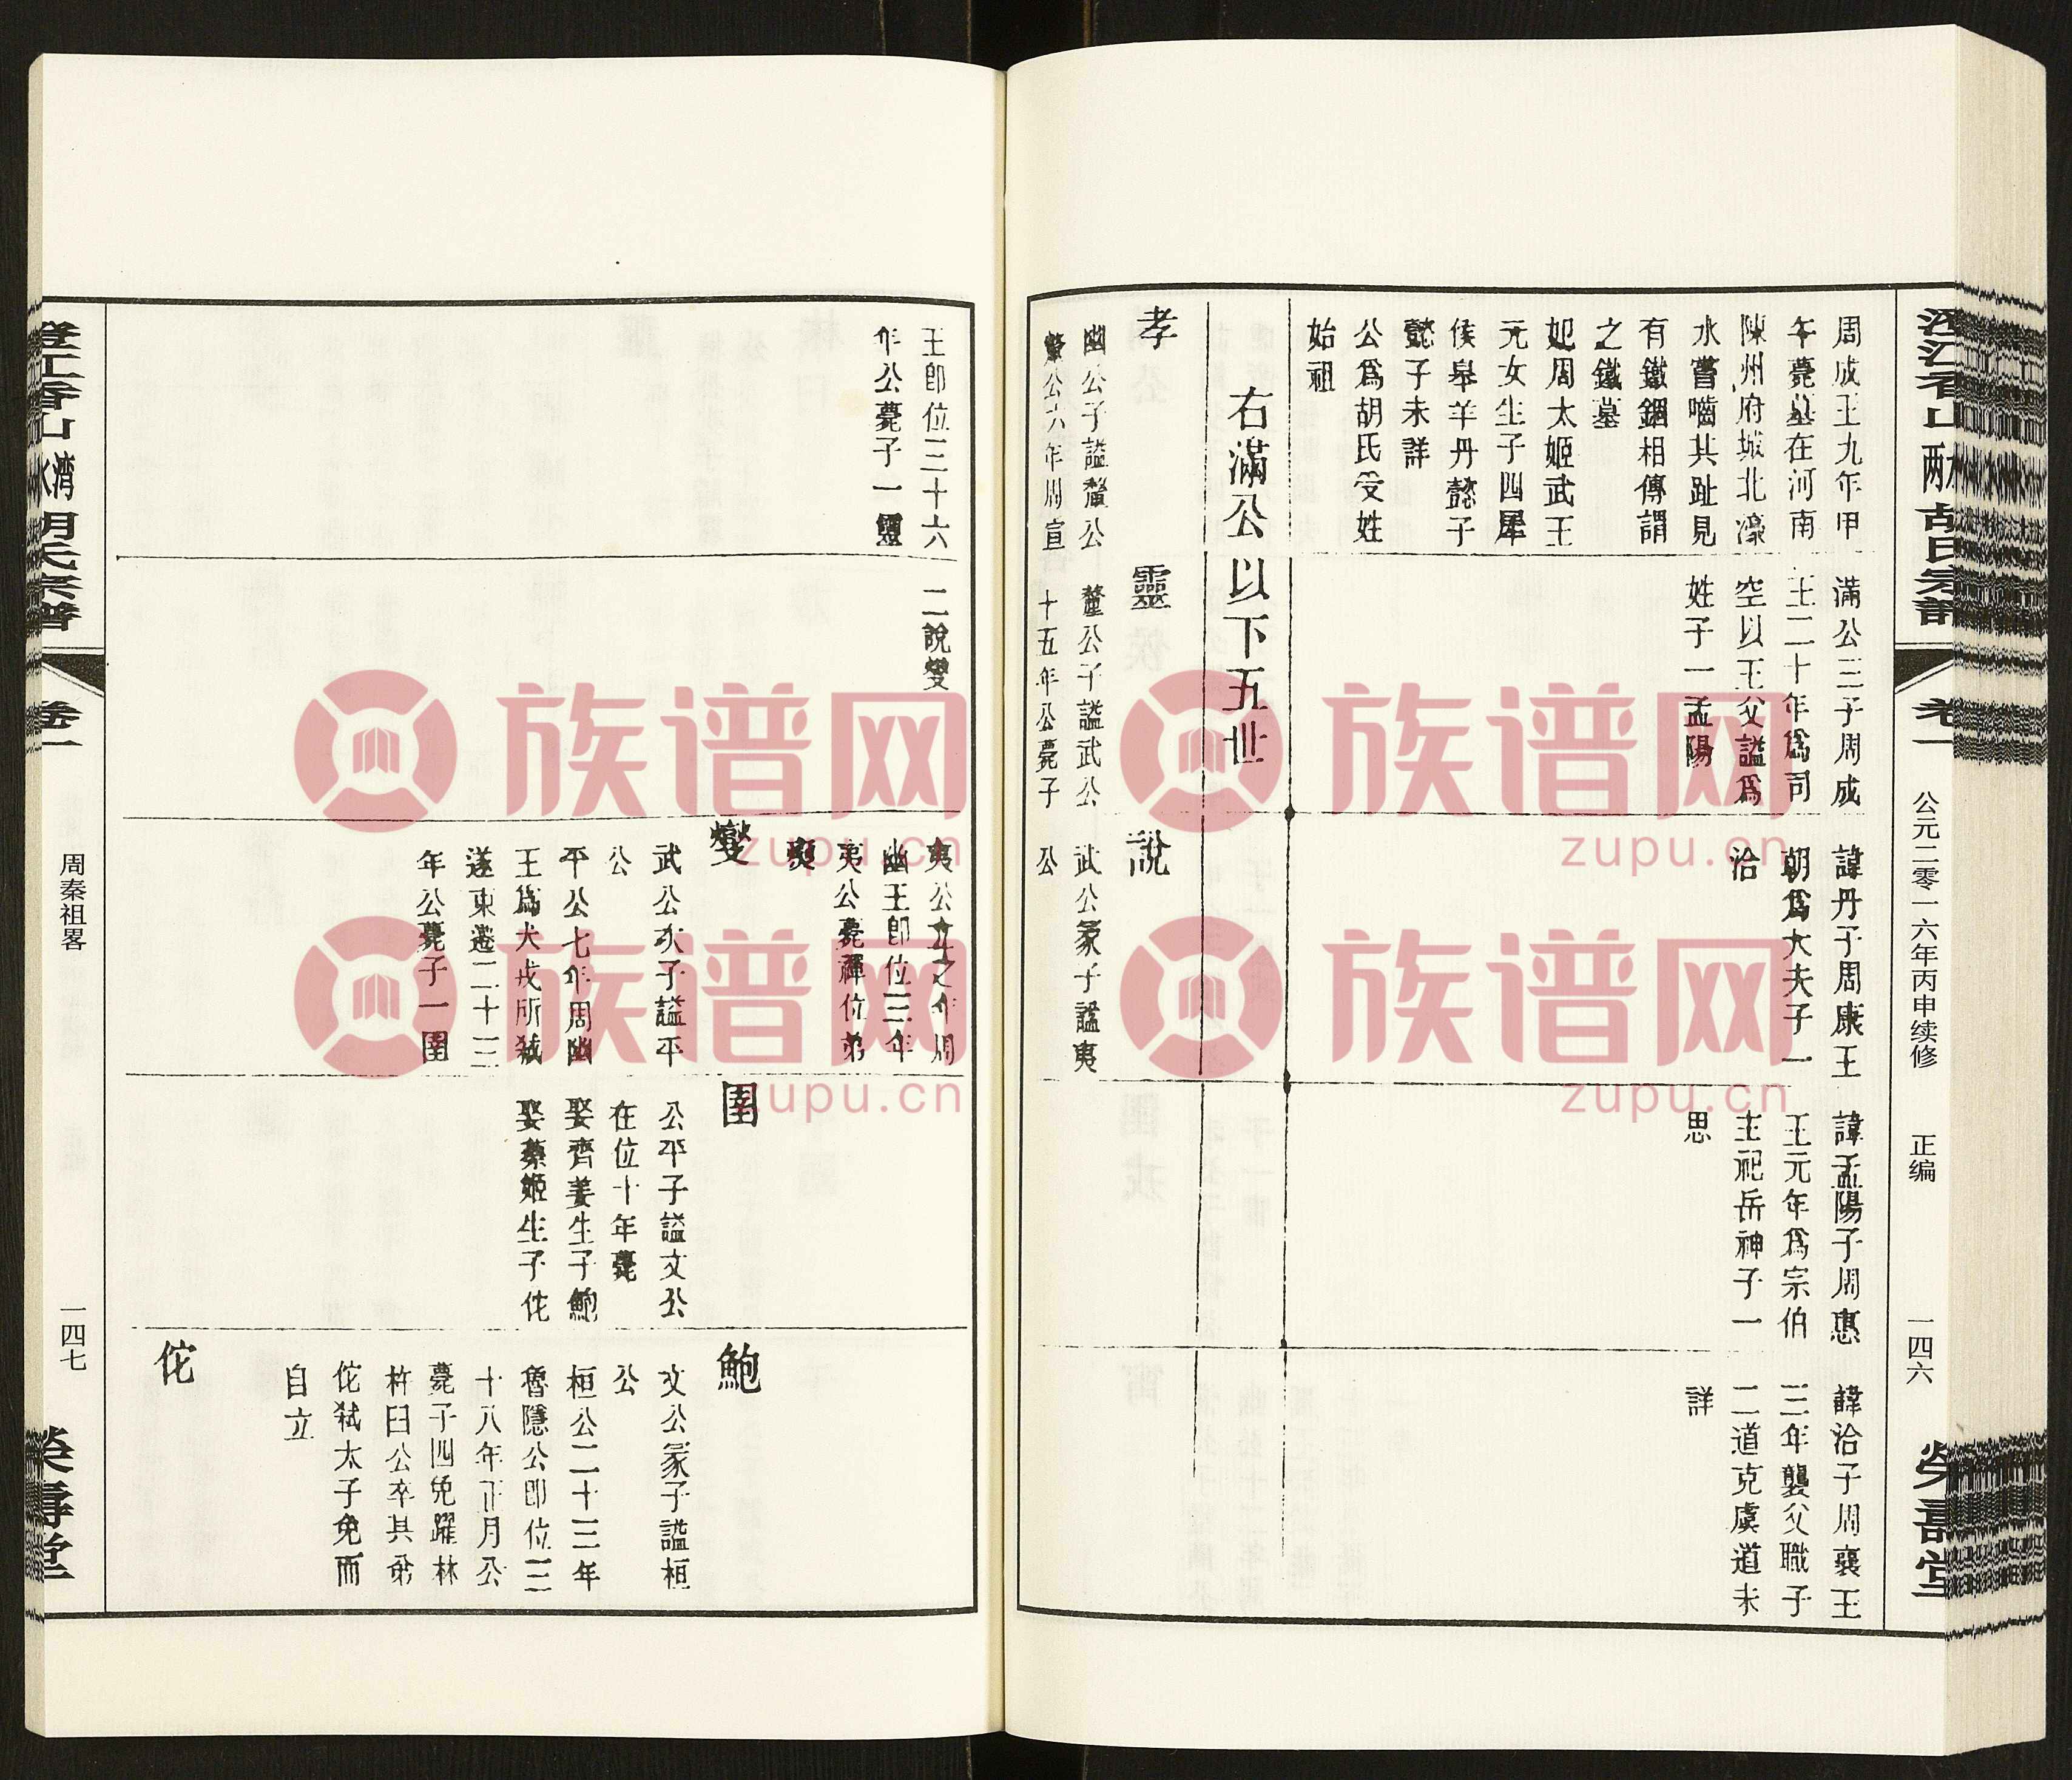 胡氏宗譜
卷一
公元二零一六年丙申续修
正编
一四六
周成王九年甲
午薨墓在河南
陳州府城北濠
水嘗嚙其趾見
有鐵錮相傳謂
之鐵墓
妃周太姬武王
元女生子四犀
侯皋羊丹懿子
懿子未詳
公爲胡氏受姓
始祖
滿公三子周成
王二十年爲司
空以王父諡爲
姓子一孟陽
諱丹子周康王
朝爲大夫子一
洽
諱孟陽子周惠
王元年爲宗伯
主祀岳神子一
思
諱洽子周襄王
三年襲父職子
二道克虞道未
詳
右滿公以下五世
孝
幽公子諡釐公
釐公六年周宣
靈
釐公子諡武公
十五年公薨子
說
武公冢子諡夷
公
王卽位三十六
年公薨子一靈
二說燮
夷公立之年周
幽王卽位三年
夷公薨禪位弟
燮
燮
武公次子諡平
公
平公七年周幽
王爲犬戎所弑
遂東遷二十三
年公薨子一圉
圉
公平子諡文公
在位十年薨
娶齊姜生子鮑
娶蔡姬生子佗
鮑
文公冢子諡桓
公
桓公二十三年
魯隱公卽位三
十八年正月公
薨子四免躍林
杵臼公卒其弟
佗弑太子免而
自立
佗
卷一
周秦祖畧
一四七
族谱网
zupu.cn
族谱网
zupu.cn
族谱网
zupu.cn
族谱网
zupu.cn